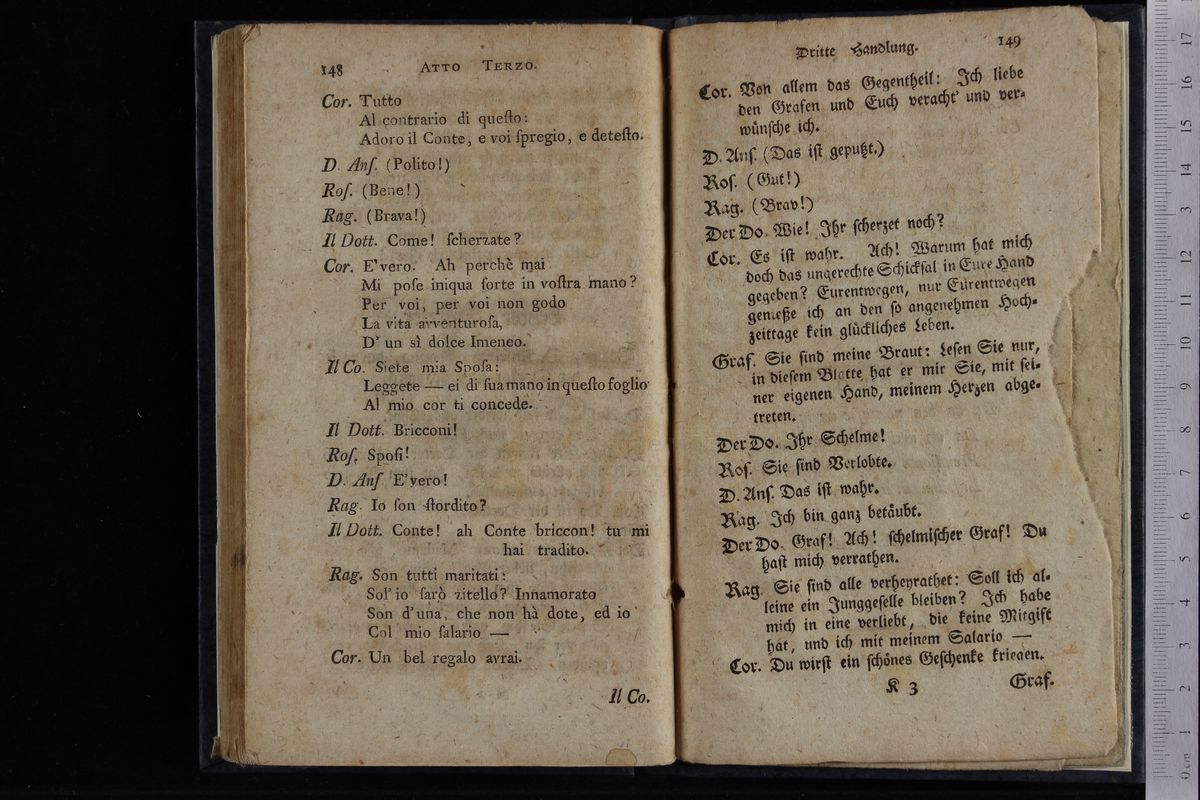 148 ATTO TERZO.
Cor. Tutto
Al contrario di queſto:
Adoro il Conte, e voi ſpregio, e deteſto.
D. Anſ. (Polito!)
Roſ. (Bene!)
Rag. (Brava!)
Il Dott. Come! ſcherzate?
Cor. E'vero. Ah perchè mai
Mi poſe iniqua ſorte in voſtra mano?
Per voi, per voi non godo
La vita avventuroſa,
D' un sì dolce Imeneo.
Il Co. Siete mia Spoſa:
Leggete — ei di ſua mano in queſto foglio
Al mio cor ti concede.
Il Dott. Bricconi!
Roſ. Spoſi!
D. Anſ E'vero!
Rag. Io ſon ſtordito?
Il Dott. Conte! ah Conte briccon! tu mi
hai tradito.
Rag. Son tutti maritati:
Sol' io ſarò zitello? Innamorato
Son d'una, che non hà dote, ed io
Col mio ſalario —
Cor. Un bel regalo avrai.
Il Co.
Dritte Handlung. 149
Cor. Von allem das Gegentheil: Ich liebe
den Grafen und Euch veracht' und ver-
wünſche ich.
D. Anſ. (Das iſt geputzt.)
Roſ. (Gut!)
Rag. (Brav!)
Der Do. Wie! Ihr ſcherzet noch?
Cor. Es iſt wahr. Ach! Warum hat mich
doch das ungerechte Schickſal in Eure Hand
gegeben? Eurentwegen, nur Eurentwegen
genieße ich an den ſo angenehmen Hoch-
zeittage kein glückliches Leben.
Graf. Sie ſind meine Braut: Leſen Sie nur,
in dieſem Blatte hat er mir Sie, mit ſei-
ner eigenen Hand, meinem Herzen abge-
treten.
Der Do. Ihr Schelme!
Roſ. Sie ſind Verlobte.
D. Anſ. Das iſt wahr.
Rag. Ich bin ganz betäubt.
Der Do. Graf! Ach! ſchelmiſcher Graf! Du
haſt mich verrathen.
Rag. Sie ſind alle verheyrathet: Soll ich al-
leine ein Junggeſelle bleiben? Ich habe
mich in eine verliebt, die keine Mitgift
hat, und ich mit meinem Salario —
Cor. Du wirſt ein ſchönes Geſchenke kriegen.
K 3 Graf.
17
16
15
14
13
12
11
10
9
8
7
6
5
4
3
2
1
0 cm